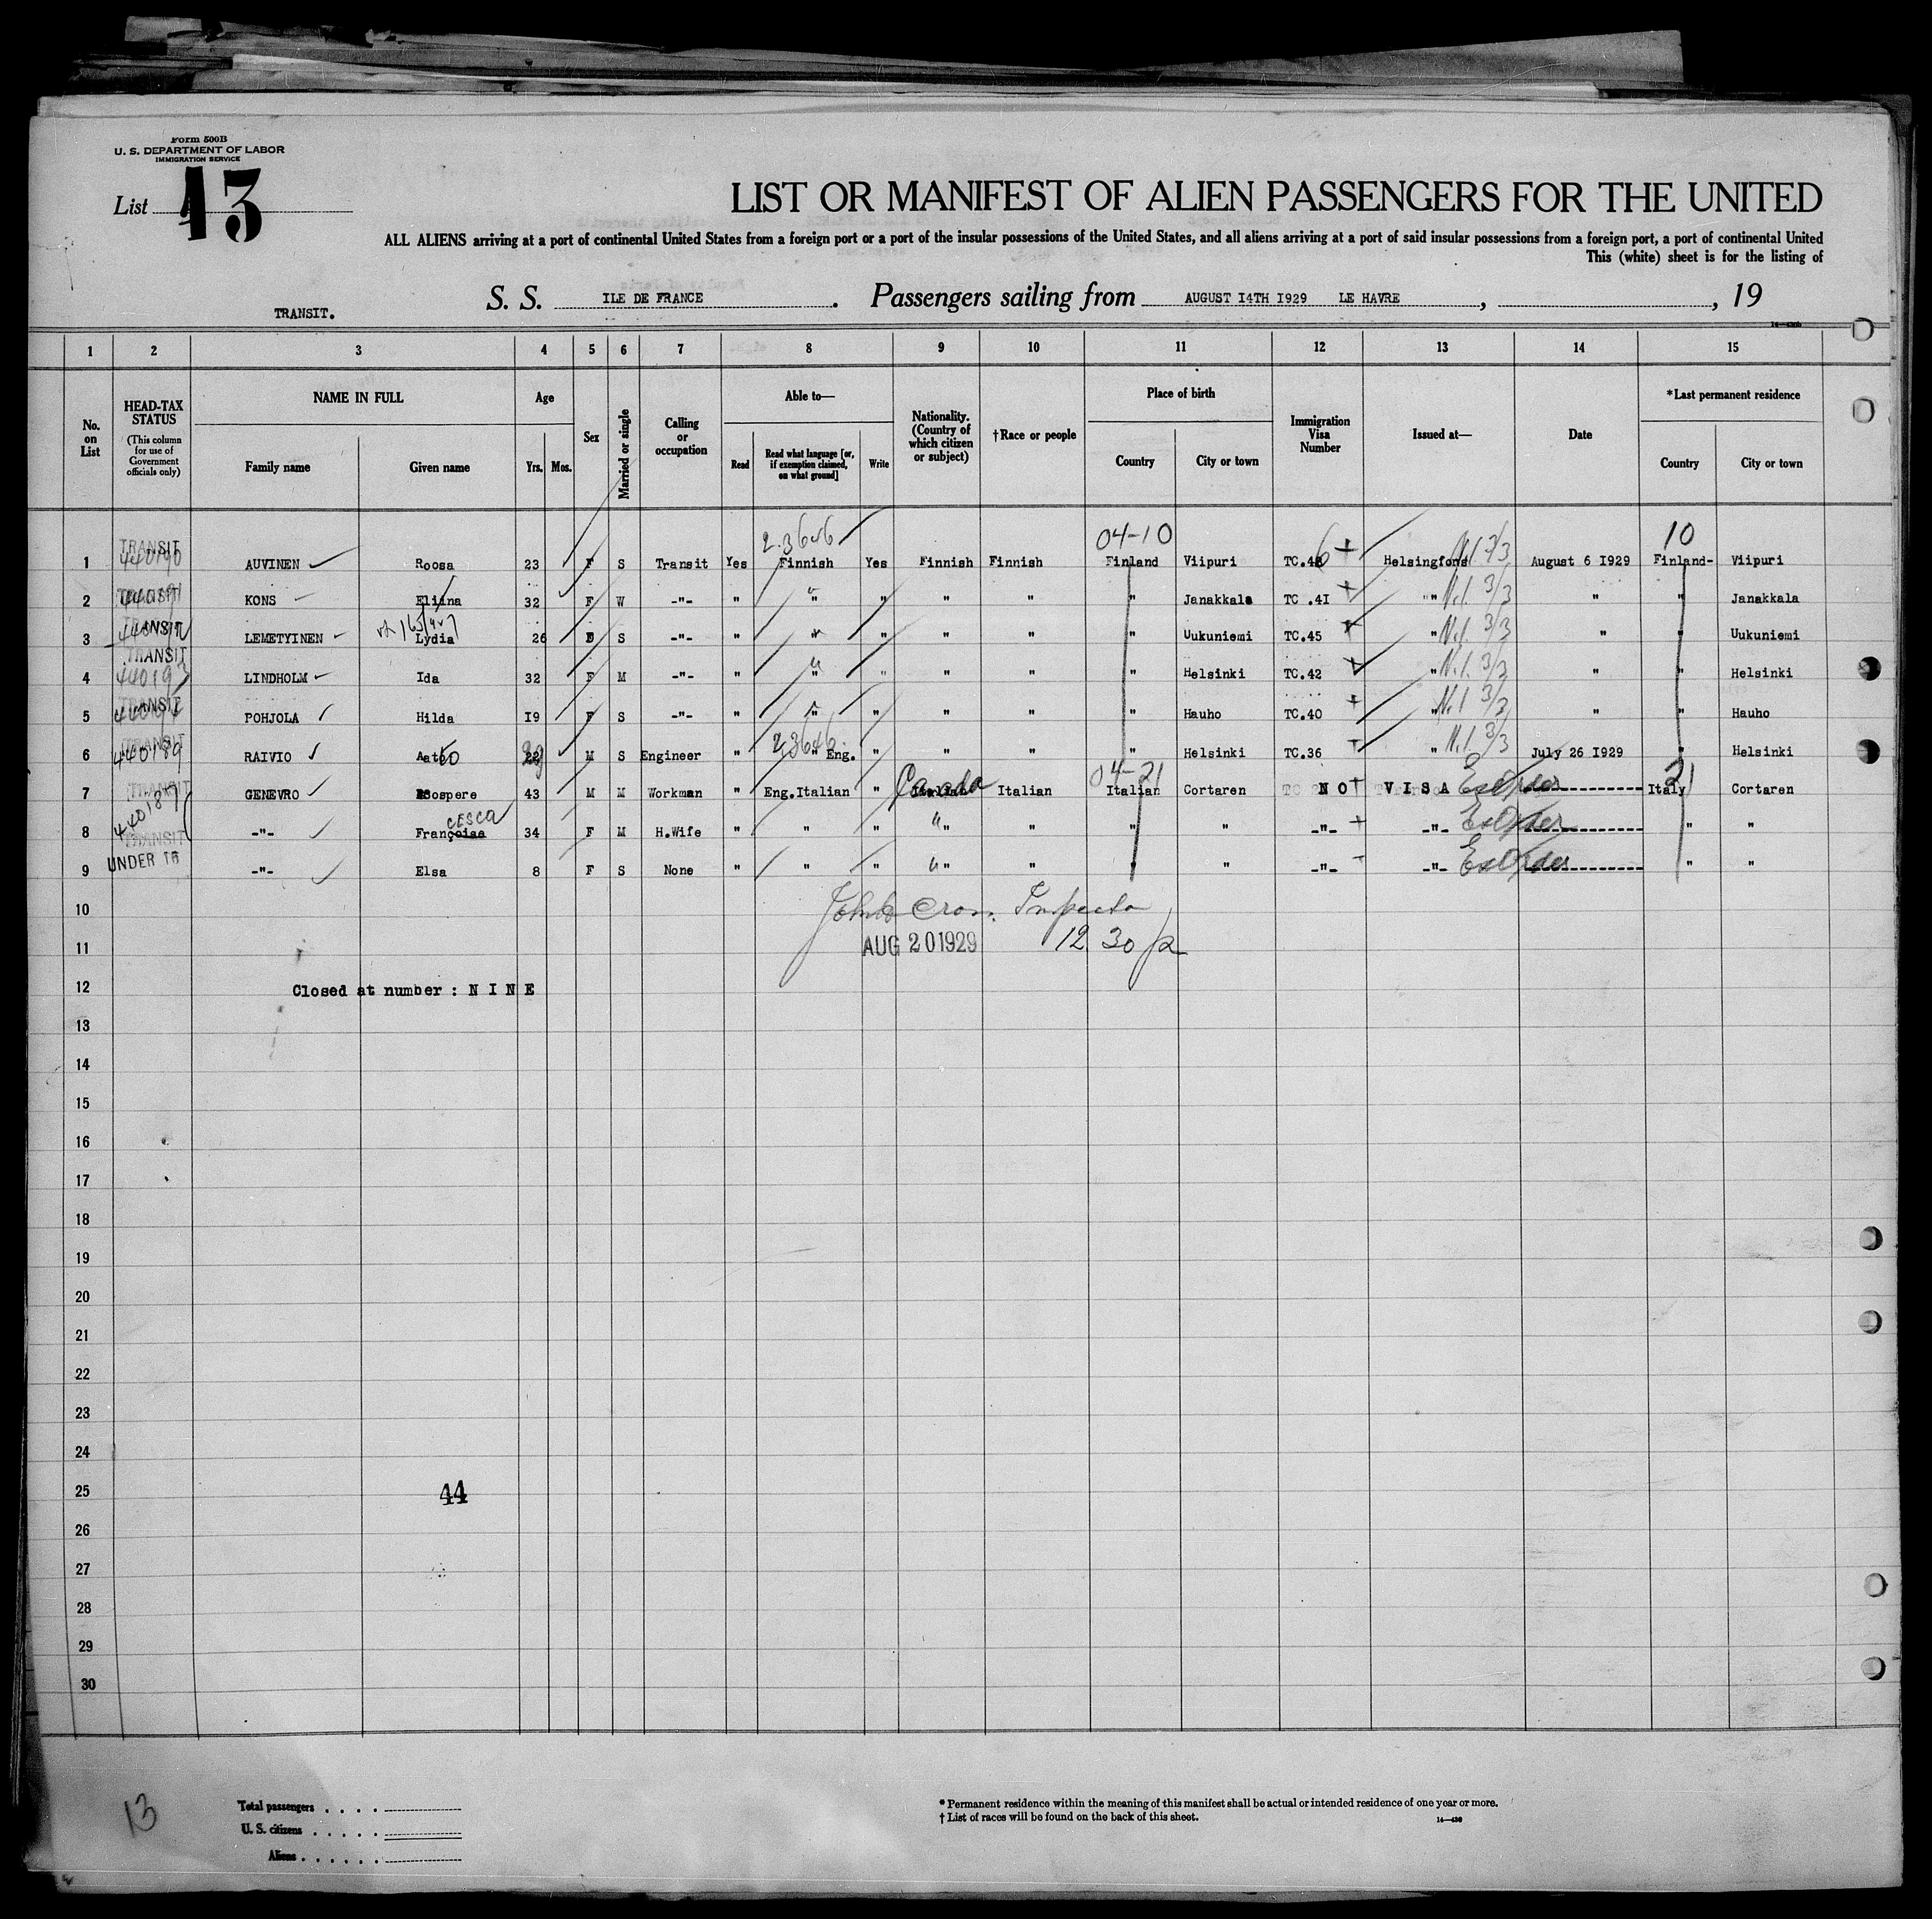 Form 500B
U. S. DEPARTMENT OF LABOR
IMMIGRATION SERVICE
List 13
LIST OR MANIFEST OF ALIEN PASSENGERS FOR THE UNITED
ALL ALIENS arriving at a port of continental United States from a foreign port or a port of the insular possessions of the United States, and all aliens arriving at a port of said insular possessions from a foreign port, a port of continental United
This (white) sheet is for the listing of
TRANSIT. S. S. ILE DE FRANCE. Passengers sailing from AUGUST I4TH I929 LE HAVRE, , 19
1 2 3 4 5 6 7 8 9 10 11 12 13 14 15
No. on List
HEAD-TAX STATUS (This column for use of Government officials only)
NAME IN FULL Family name Given name
Age Yrs. Mos.
Sex
Married or single
Calling or occupation
Able to— Read Read what language [or, if exemption claimed, on what ground] Write
Nationality. (Country of which citizen or subject)
†Race or people
Place of birth Country City or town
Immigration Visa Number
Issued at—
Date
*Last permanent residence Country City or town
2.3646 04-10 10
1 TRANSIT 440190 AUVINEN Roosa 23 F S Transit Yes Finnish Yes Finnish Finnish Finland Viipuri TC.46 Helsingfors N.I 3/3 August 6 I929 Finland- Viipuri
2 TRANSIT KONS Eliina 32 F W -"- " " " " " " Janakkala TC .4I "" N.I. 3/3 " " Janakkala
3 TRANSIT LEMETYINEN Lydia 26 F S -"- " " " " " " Uukuniemi TC.45 " N.I. 3/3 " " Uukuniemi
4 TRANSIT 440193 LINDHOLM Ida 32 F M -"- " " " " " " Helsinki TC.42 " N.I. 3/3 " " Helsinki
5 TRANSIT POHJOLA Hilda I9 F S -"- " " " " " " Hauho TC.40 " N.I 3/3 " " Hauho
2,3646
6 TRANSIT 440189 RAIVIO Aato M S Engineer " " Eng. " " " " Helsinki TC.36 " N.I. 3/3 July 26 I929 " Helsinki
04-21 21
7 TRANSIT 440187 GENEVRO Roospere 43 M M Workman " Eng.Italian " Canada Italian Italian Cortaren NO VISA Ex Order Italy Cortaren
8 TRANSIT -"- Françoise CESCA 34 F M H.Wife " " " " " " " -"- -"- Ex Order " "
9 UNDER 16 -"- Elsa 8 F S None " " " " " " " -"- -"- Ex Order " "
10 Inspector
11 AUG 20 1929 12 30 p
12 Closed at number : N I N E
13
14
15
16
17
18
19
20
21
22
23
24
25 44
26
27
28
29
30
13
Total passengers . . . .
U. S. citizens . . . . .
Aliens . . . . . .
* Permanent residence within the meaning of this manifest shall be actual or intended residence of one year or more.
† List of races will be found on the back of this sheet.
14—430